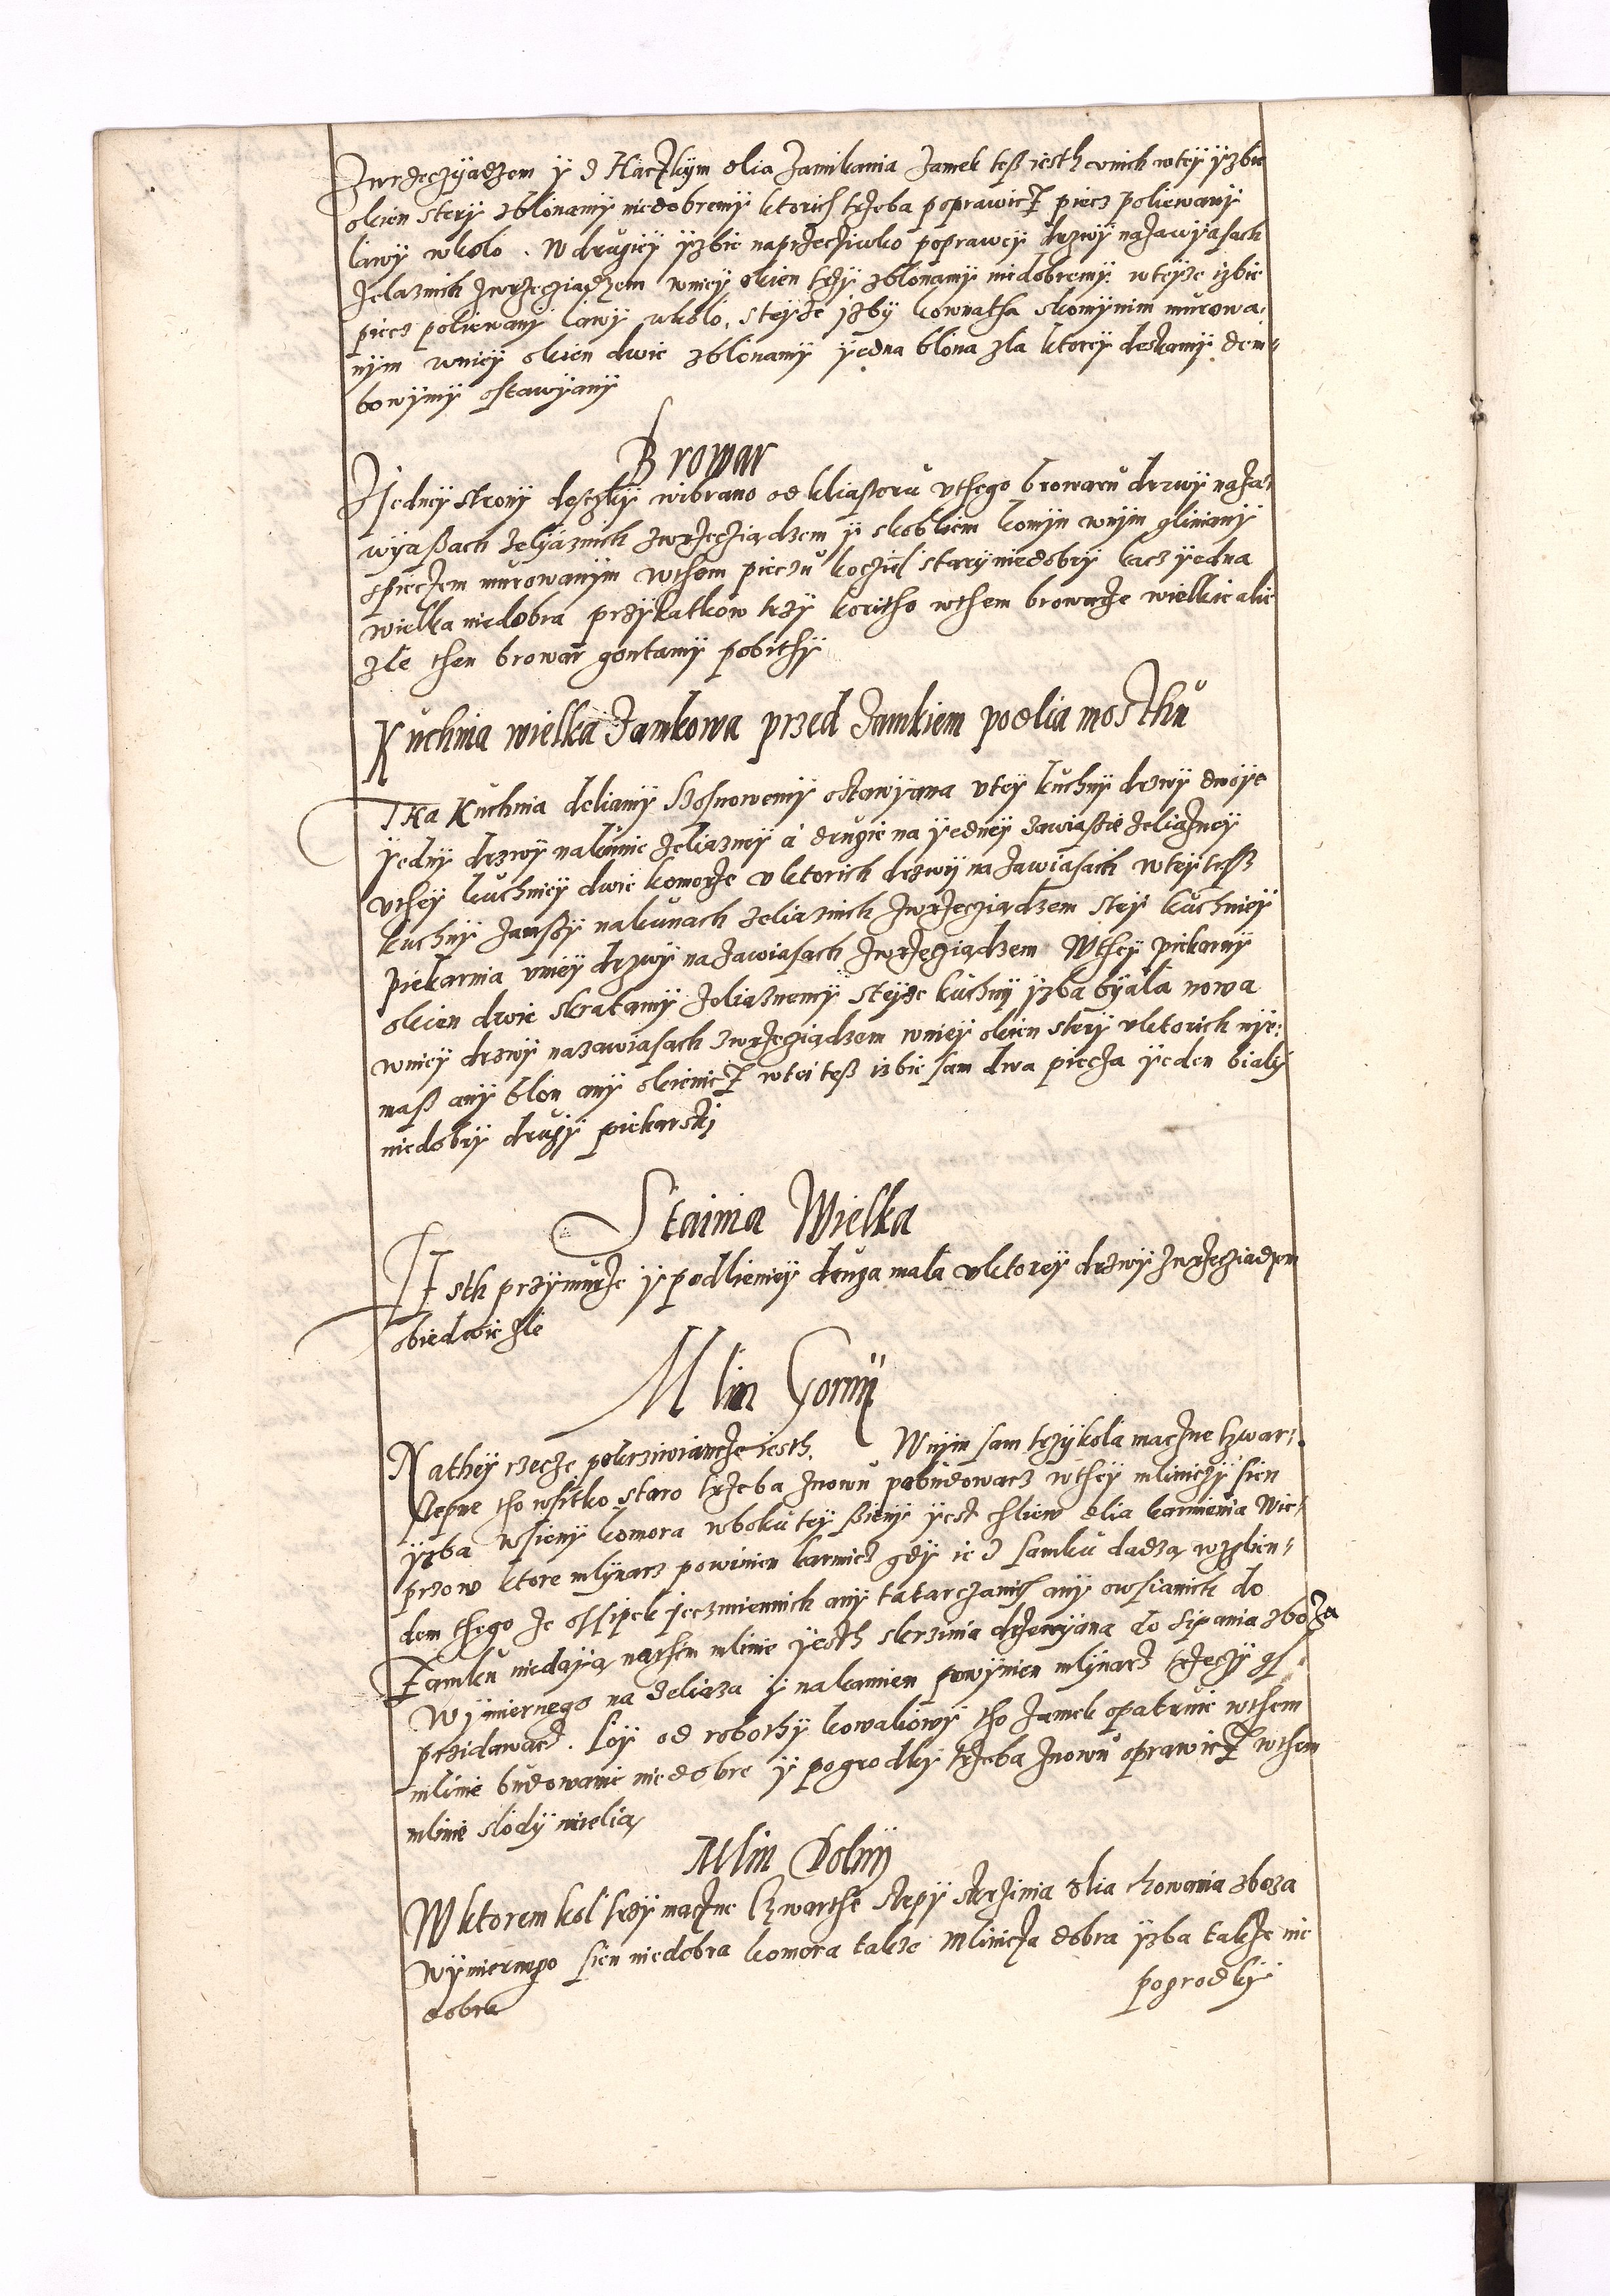 Zwrzecziądzem y s Haczkym dlia zamikania zamek tesz iesth wnich wtey yzbie
okien stery zblonamy niedobremy ktorich trzeba poprawicz piecz poliewany
lawy wkolo. W drugiey yzbie naprzecziwko poprawey drzwy na zawyasach
zelaznich zwrzecziądzem wniey okien trzy zblonamy niedobremy. wteyze izbie
piecz poliewany lawy wkolo, steyze yzby komnatha skomynem murowa-
nym wniey okien dwie zblonamy yedna blona zla ktorey deskamy dem-
bowymy ostawyany
Browar
Zjedney strony desczky wibrano od kliastoru uthego browaru drzwy na za-
wyasach zelyaznich zwrzecziądzem y skobliem komyn wnym gliniany
spieczem murowanym wthem pieczu koczieł stary niedobry kacz yedna
wielka niedobra przykatkow trzy koritho wthem browarze wielkie alie
zle then browar gontamy pobithy
Kuchnia wielka zamkowa przed zamkiem podlia mosthu
Tha Kuchnia deliamy Sosnowemy ostawyana utey kuchny drzwy dwoye
yedny drzwy na kunie zeliazney a drugie na yedney zawiasie zeliazney
uthey kuchniey dwie komorze uktorich drzwy na zawiasach wtey tesz
kuchny zamssy na kunach zeliaznich zwrzecziądzem stey kuchniey
piekarnia uniey drzwy na zawiasach zwrzecziądzem Wthey piekarny
okien dwie skratamy zeliaznemy steyze kuchny yzba byala nowa
wniey drzwy na zawiasach zwrzecziądzem wniey okien stery uktorich nye-
masz any blon any okienicz wtei tesz izbie sam dwa piecza yeden bialy
niedobry drugy piekarsky
Stainia Wielka
Jesth przymurze y podlieniey druga mala uktorey drzwy zwrzecziądzem
obiedwie zle
Mlin Gorny
Nathey rzecze pokrziwiancze iesth. Wnym sam trzy kola maczne czwar-
stepne tho wsitko staro trzeba znowu pobudowacz wthey mliniczy sien
yzba wsieny komora wboku tey sieny yest chliew dlia karmienia wie-
przow ktore mlynarz powinien karmicz gdy ie z samku dadzą wzglien-
dem thego ze ossipek jeczmiennich any tatarczanich any owsianich do
zamku niedayą nathem mlinie yesth skrzinia drzewyana do sipania zboza
wymiernego na zeliaza y na kamien powynien mlynarz trzeczy gs.
przidawacz. Loy od robothy kowaliowy tho zamek opatruie wthem
mlinie budowanie niedobre y pogrodky trzeba znowu oprawicz wthem
mlinie slody mielią
Mlin Dolny
Wktorem kol trzy maczne czwarthe stepy skrzinia dlia chowania zboza
wymiernego sien niedobra komora takze Mlinicza dobra yzba takze nie
dobra
pogrodky